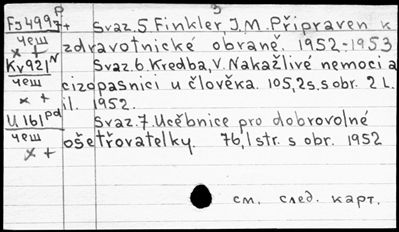 3
Fj4997P+ Svaz.5 Finkler, J.M. Připraven k
чеш x+ zdravotnické obraně. 1952-1953
Kv921N Svaz.6. Kredba, V. Nakažlivé nemoci a
чеш x+ cizopasnici u člověka. 105,2s.s obr. 2 L.
il. 1952.
Uj161pd Svaz.7. Učebnice pro dobrovolné
чеш x+ ošetřovatelky. 76,1str. s obr. 1952
см. след. карт.